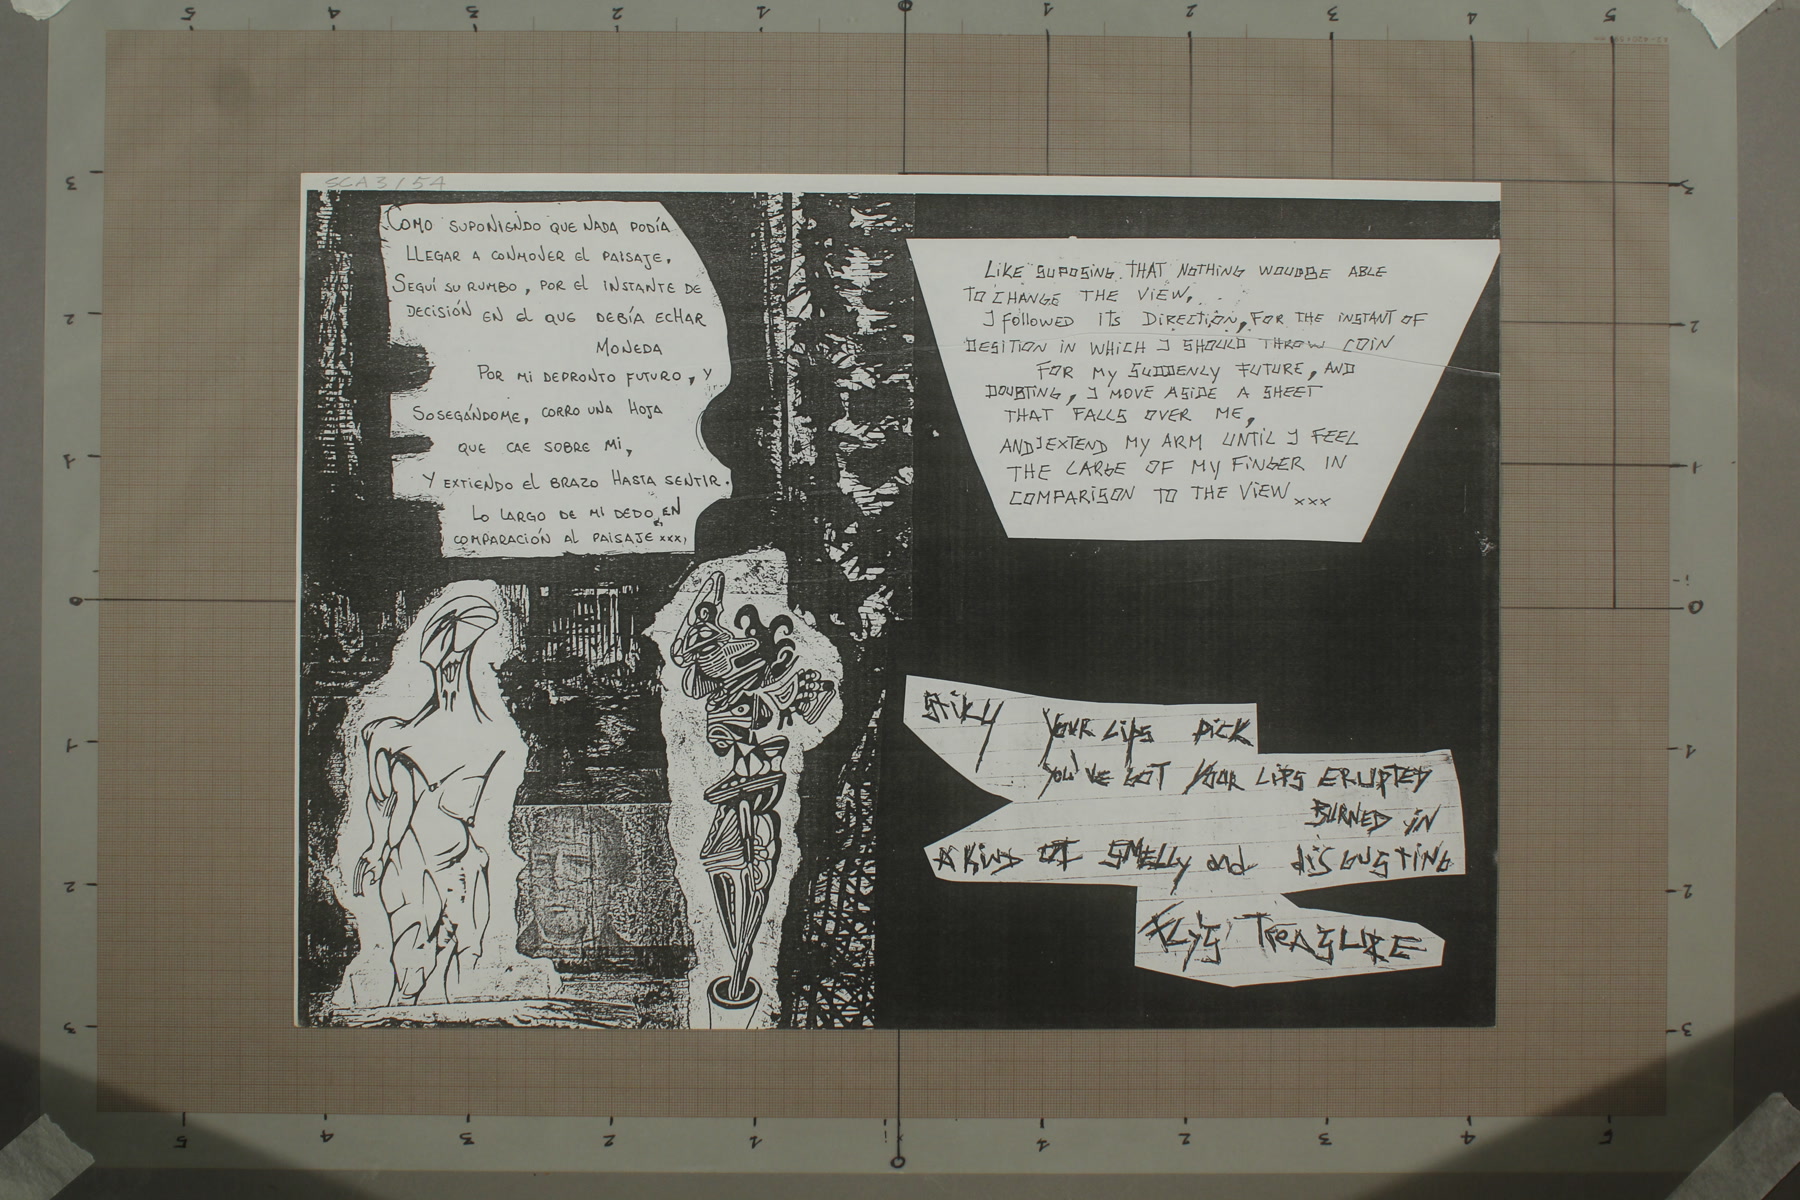 SCA3/54
COMO SUPONIENDO QUE NADA PODÍA
LLEGAR A CONMOVER EL PAISAJE,
SEGUÍ SU RUMBO, POR EL INSTANTE DE
DECISIÓN EN EL QUE DEBÍA ECHAR
MONEDA
POR MI DEPRONTO FUTURO, Y
SOSEGÁNDOME, CORRO UNA HOJA
QUE CAE SOBRE MI,
Y EXTIENDO EL BRAZO HASTA SENTIR.
LO LARGO DE MI DEDO, EN
COMPARACIÓN AL PAISAJE xxx,
LIKE SUPOSING THAT NOTHING WOUDBE ABLE
TO CHANGE THE VIEW,
I FOLLOWED ITS DIRECTION, FOR THE INSTANT OF
DESITION IN WHICH I SHOULD THROW COIN
FOR MY SUDDENLY FUTURE, AND
DOUBTING, I MOVE ASIDE A SHEET
THAT FALLS OVER ME,
AND I EXTEND MY ARM UNTIL I FEEL
THE LARGE OF MY FINGER IN
COMPARISON TO THE VIEW xxx
STIKY YOUR LIPS PICK
YOU'VE GOT YOUR LIPS ERUPTED
BURNED IN
A KIND OF SMELLY and disGUSTING
FLY'S TREASURE
5 4 3 2 1 0 1 2 3 4 5
3 2 1 0 1 2 3
3 2 1 0 1 2 3
5 4 3 2 1 0 1 2 3 4 5